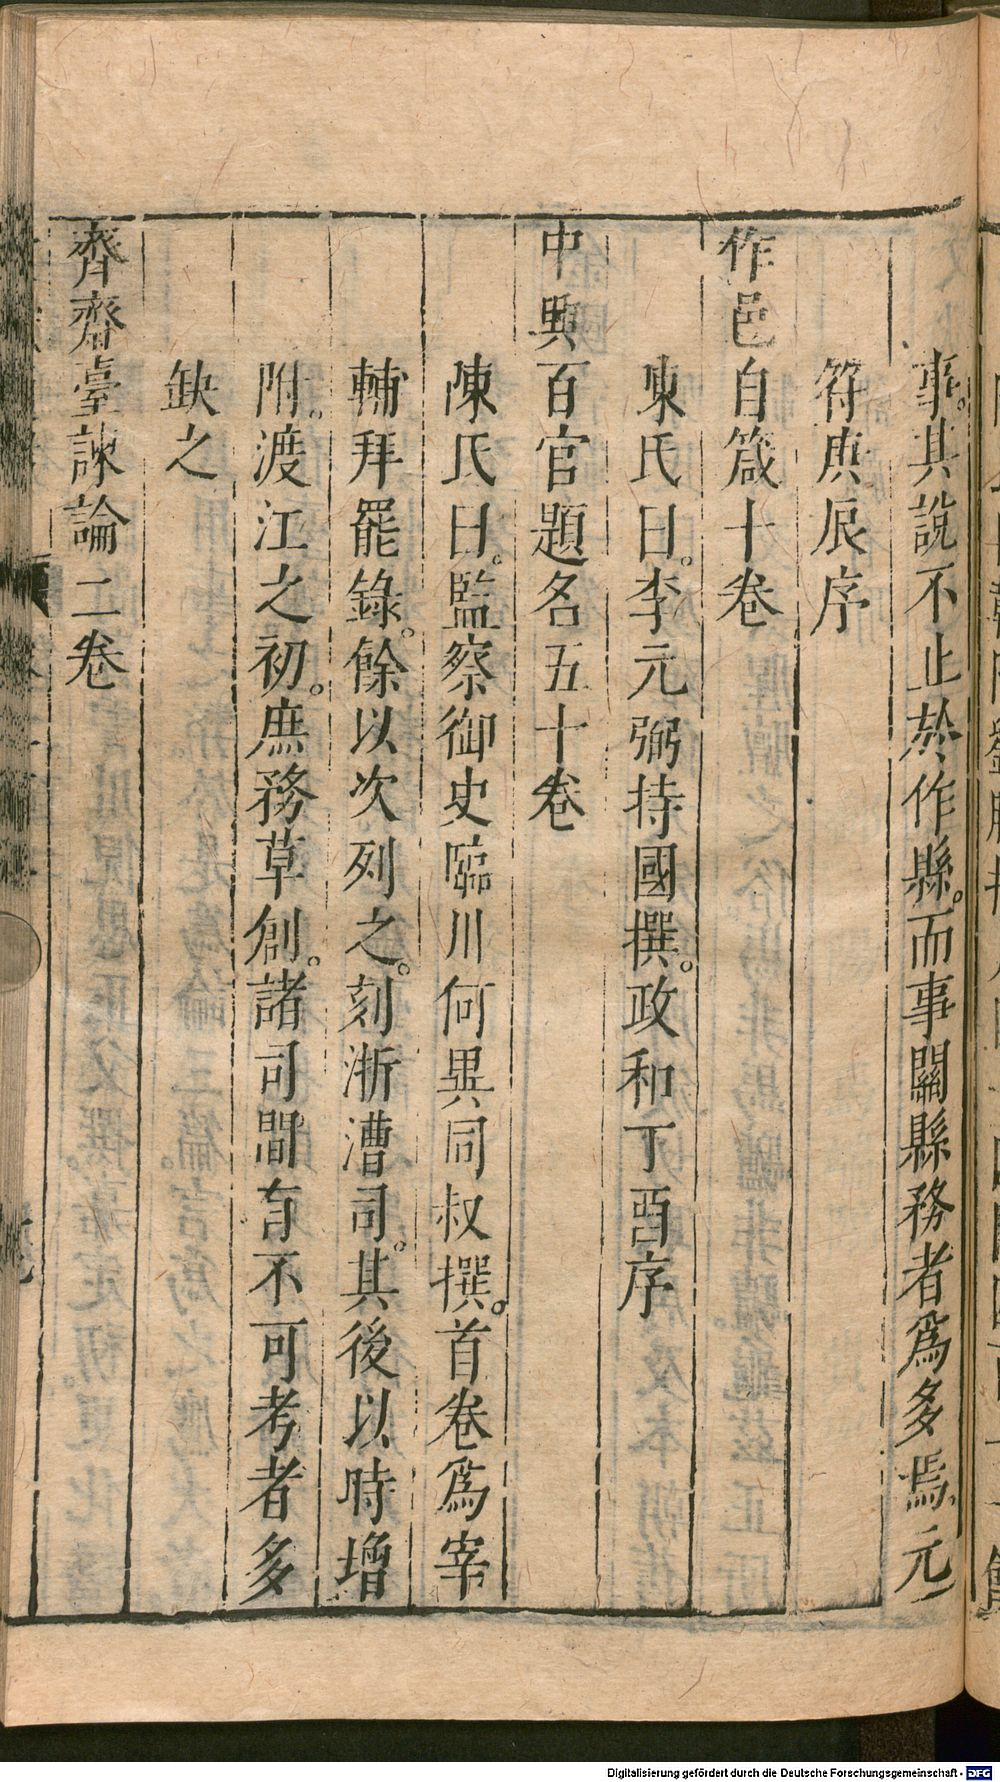 事。其説不止於作縣。而事關縣務者爲多焉。元
符庚辰序
作邑自箴十卷
陳氏曰。李元弼持國撰。政和丁酉序
中興百官題名五十卷
陳氏曰。監察御史臨川何異同叔撰。首卷爲宰
輔拜罷錄。餘以次列之。刻浙漕司。其後以時增
附。渡江之初。庶務草創。諸司間有不可考者多
缺之
齊齋臺諫論二卷
Digitalisierung gefördert durch die Deutsche Forschungsgemeinschaft - DFG